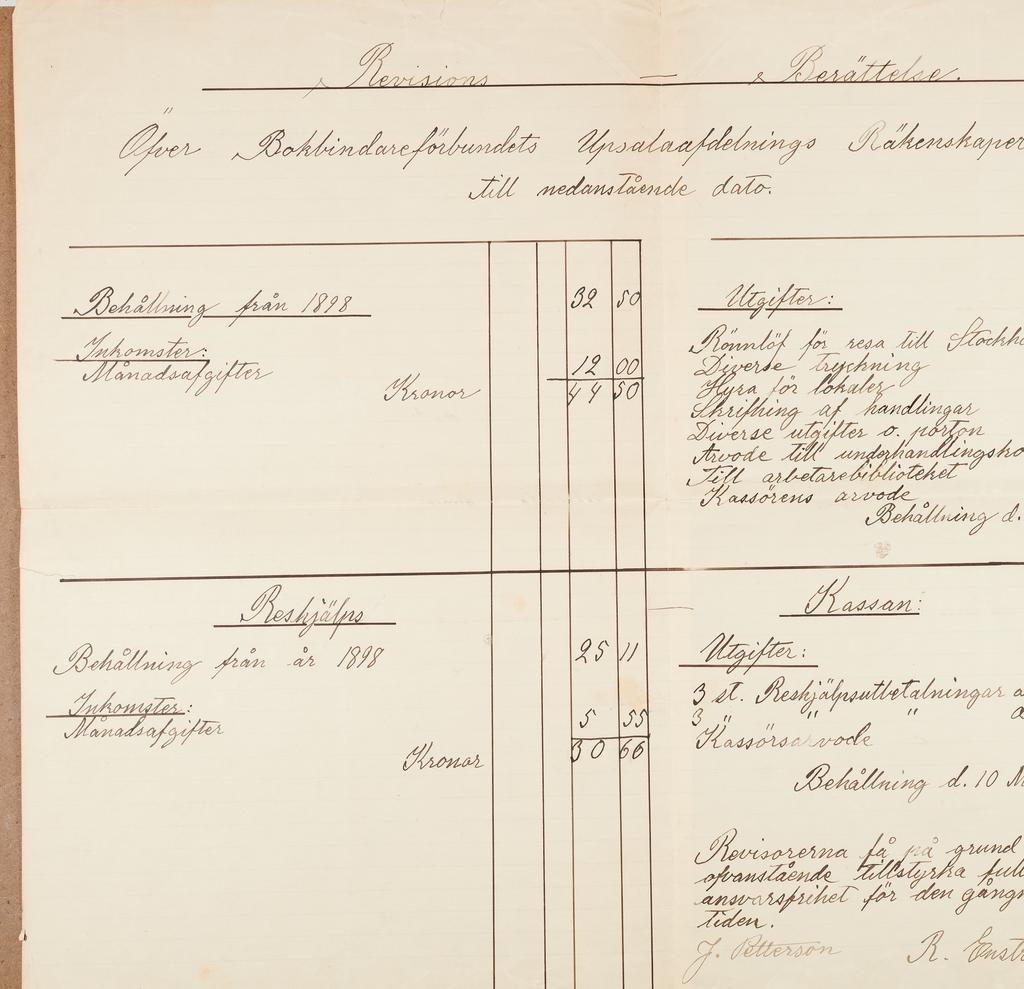 Revisions — Berättelse.
Öfver Bokbindareförbundets Upsalaafdelnings Räkenskaper
till nedanstående dato.
Behållning från 1898 32 50
Inkomster:
Månadsafgifter 12 00
Kronor 44 50
Utgifter:
Rönnlöf för resa till
Diverse tryckning
Hyra för lokaler
Skrifning af handlingar
Diverse utgifter o. porton
Arvode till
Till arbetarebiblioteket
Kassörens arvode
Behållning d.
Reshjälps Kassan:
Behållning från år 1898 25 11
Inkomster:
Månadsafgifter 5 55
Kronor 30 66
Utgifter:
3 st. Reshjälpsutbetalningar a
3 " " " a
Kassörsarvode
Behållning d. 10
Revisorerna få på grund
ofvanstående tillstyrka
ansvarsfrihet för den
tiden.
J. Petterson R.